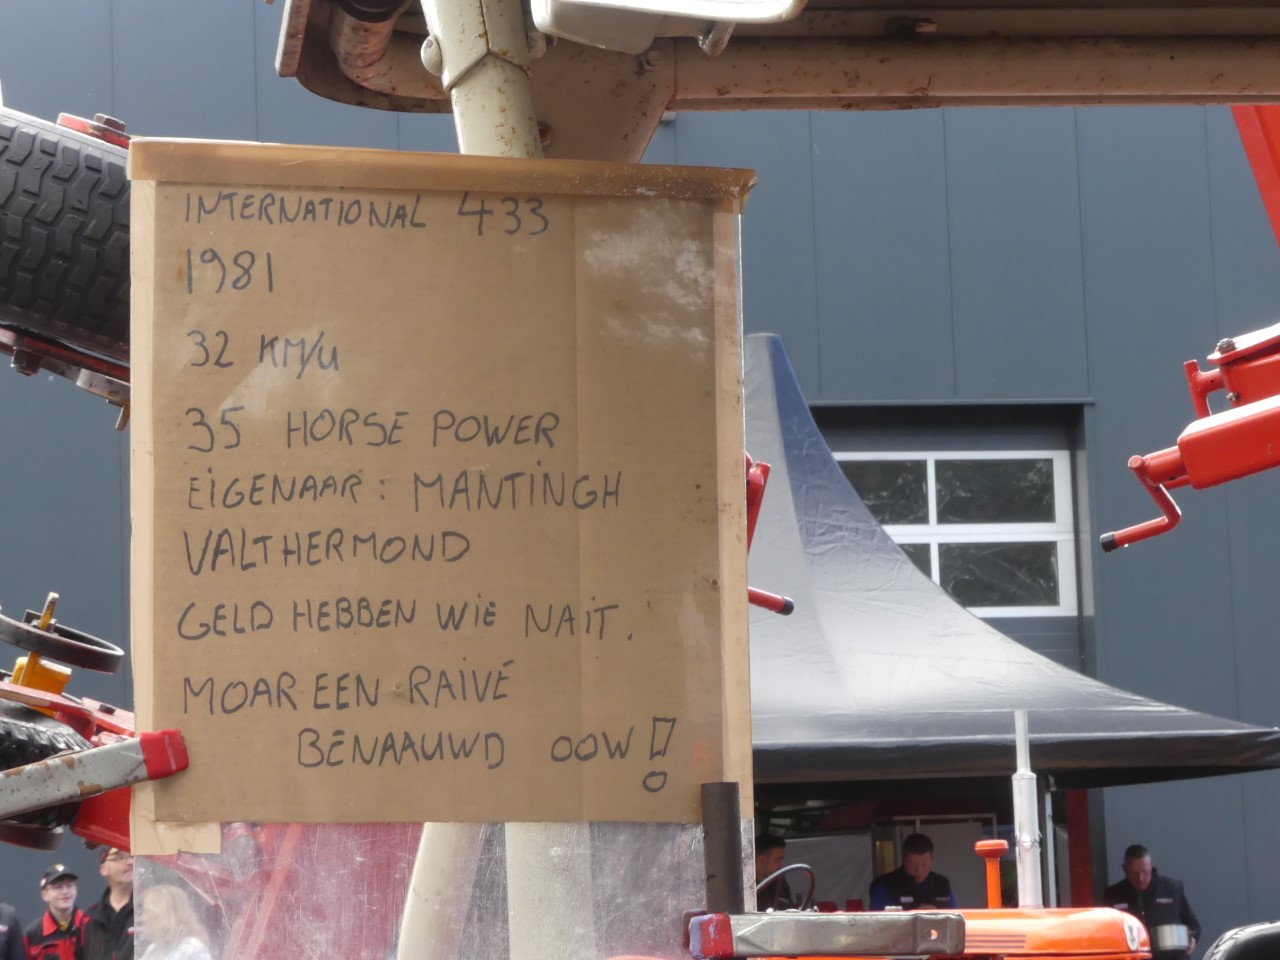 INTERNATIONAL 433
1981
32 KM/u
35 HORSE POWER
EiGENAAR: MANTiNGH
VALTHERMOND
GELD HEBBEN WiE NAiT.
MOAR EEN RAiVÉ
BENAAUWD OOW!